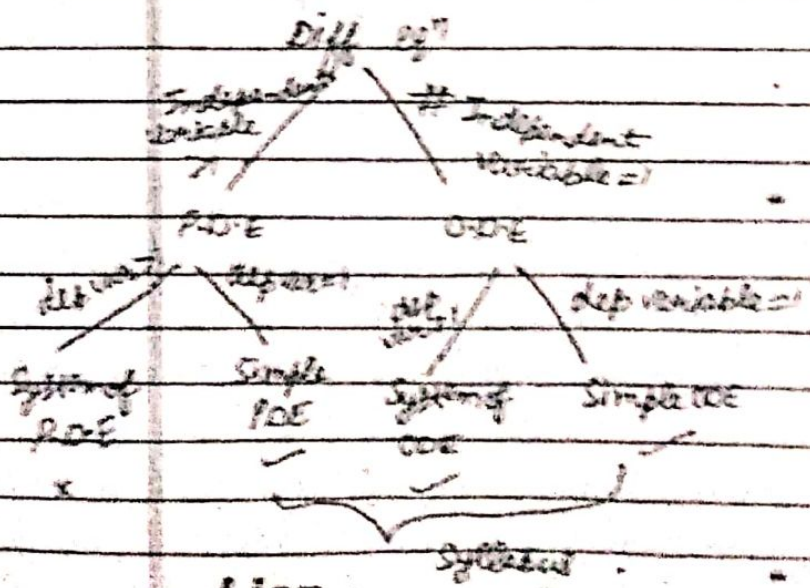 Diff eqⁿ
Independent variable >1
# Independent variable = 1
P.D.E
O.D.E
dep var >1
dep var = 1
dep var >1
dep variable = 1
System of P.D.E
Simple PDE
System of ODE
Simple ODE
x
✓
✓
✓
Syllabus